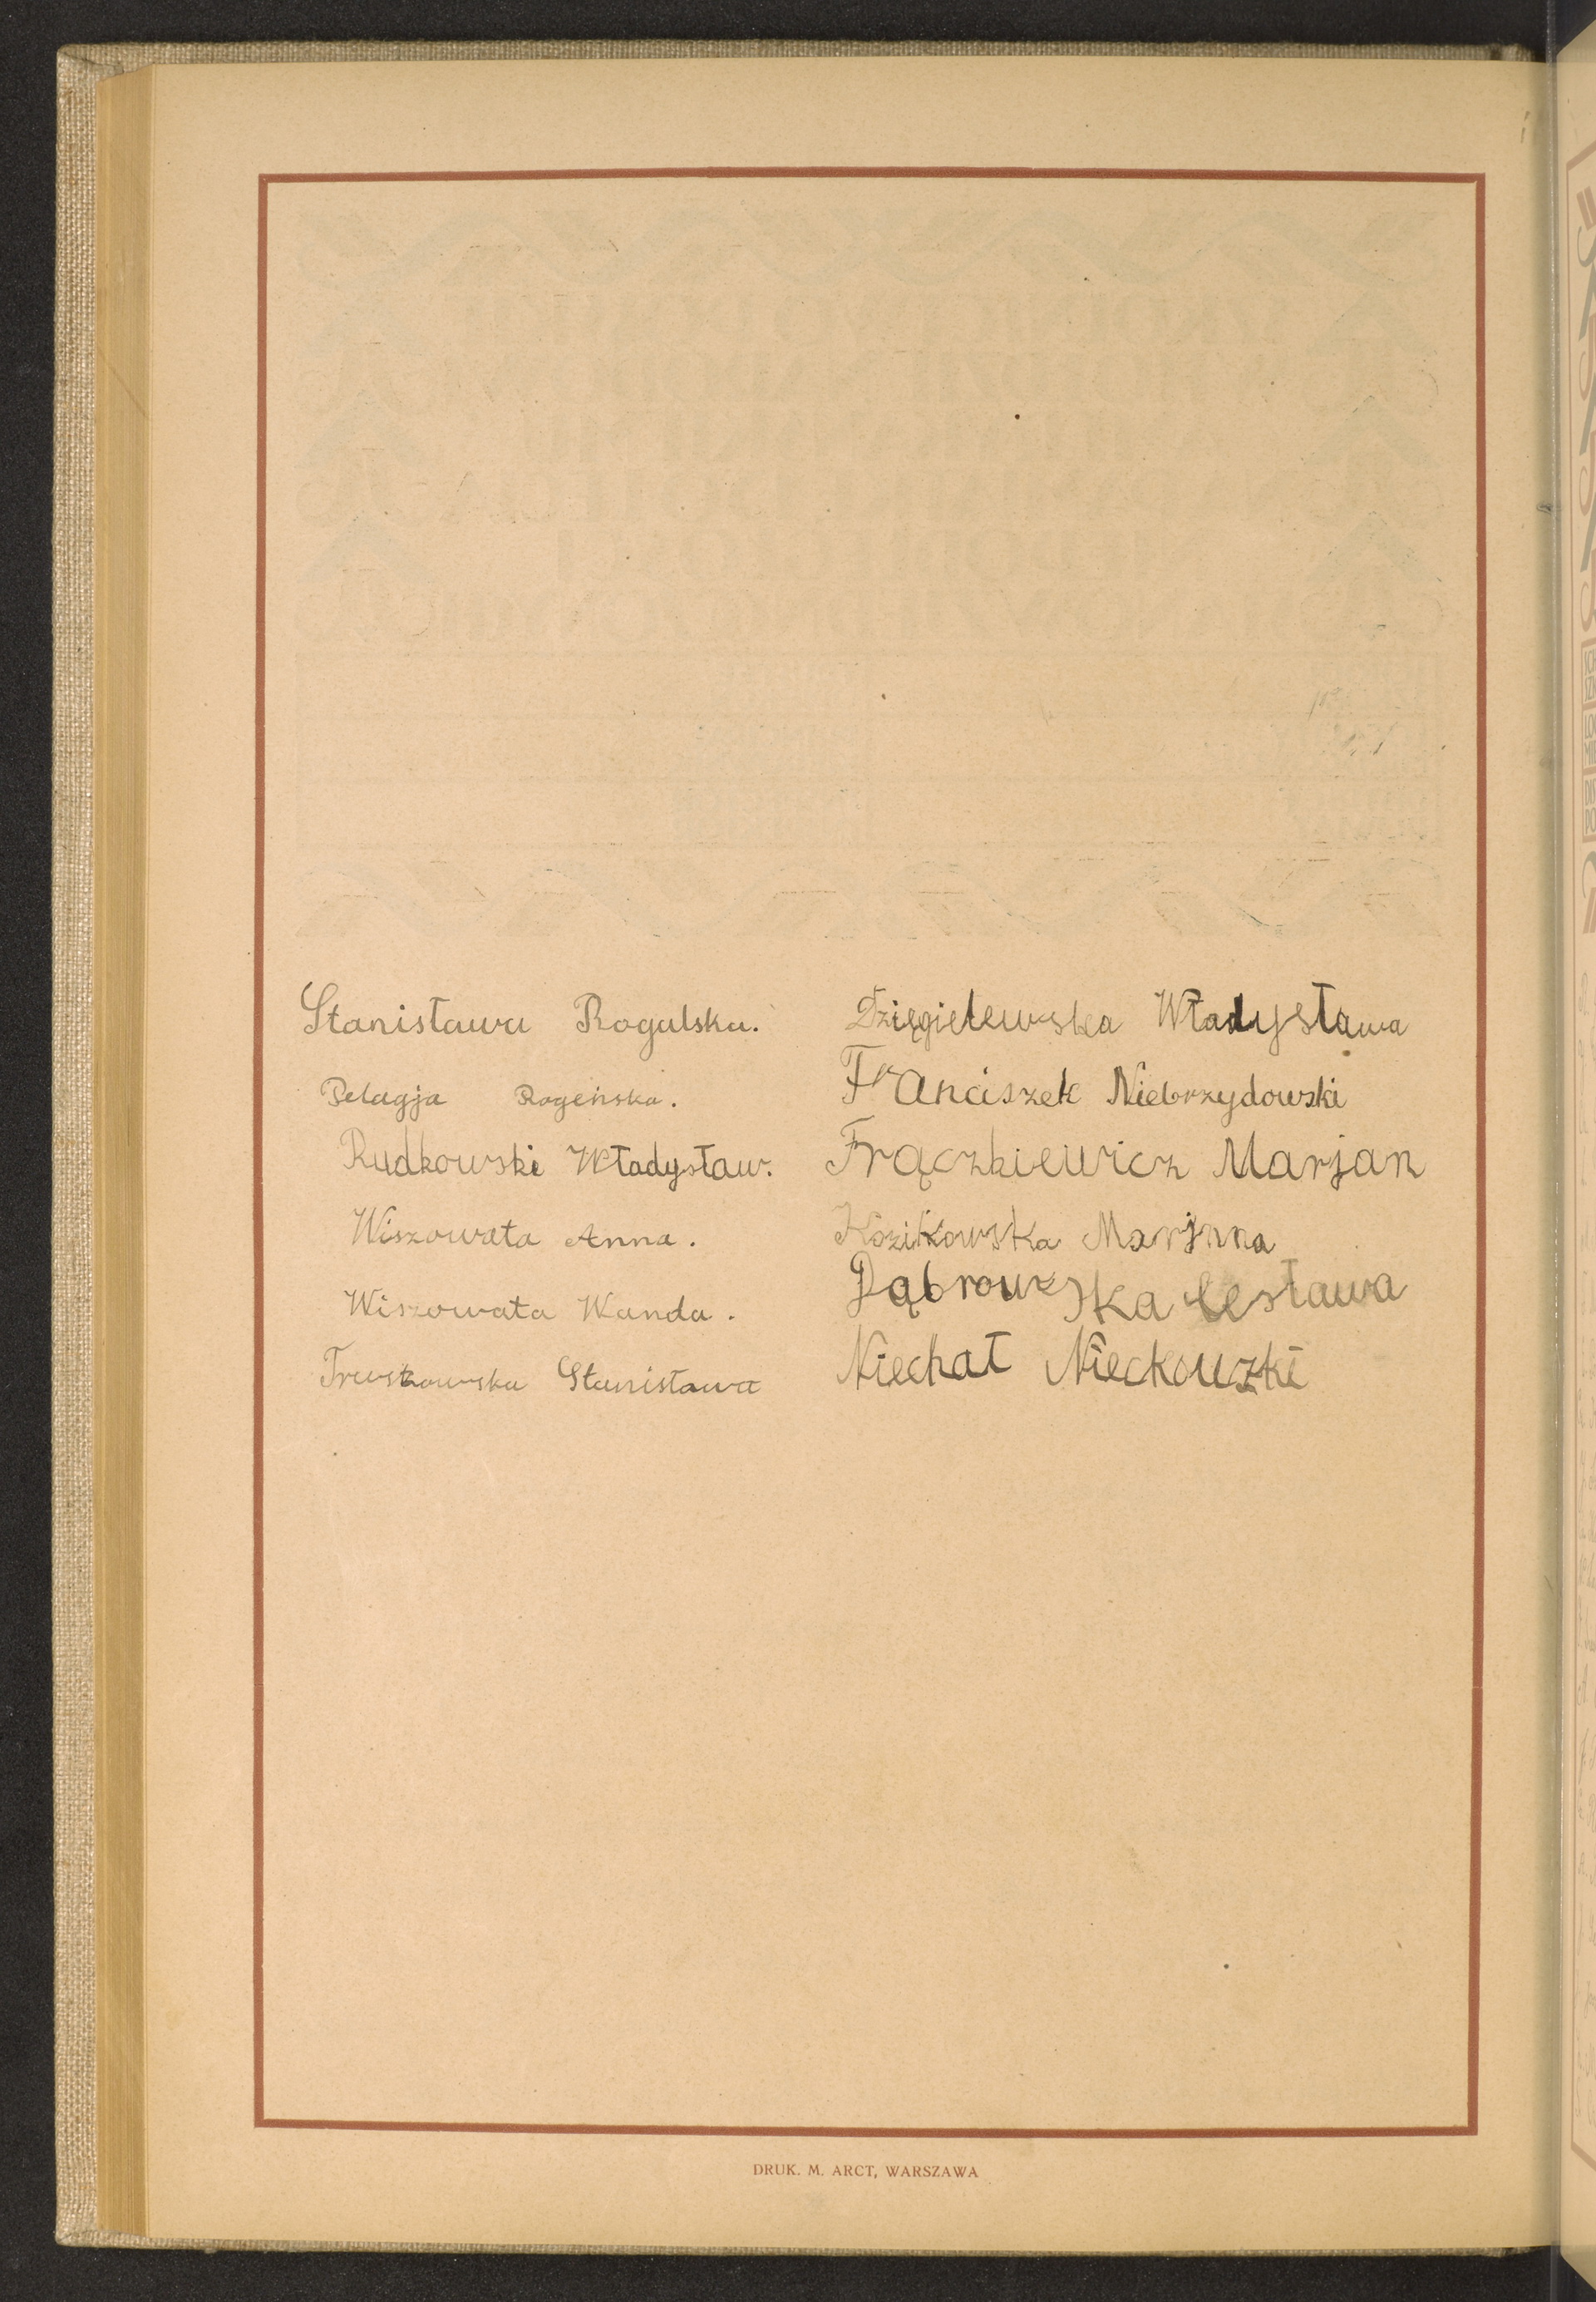 Stanisława Rogalska.
Pelagja Rogeńska.
Rudkowski Władysław.
Wiszowata Anna.
Wiszowata Wanda.
Truszkowska Stanisława
Dzięgielewska Władysława
Franciszek Niebrzydowski
Frączkiewicz Marjan
Kozikowska Marjnna
Dąbrowska Cesława
Niechał Nieckowzki
DRUK. M. ARCT, WARSZAWA